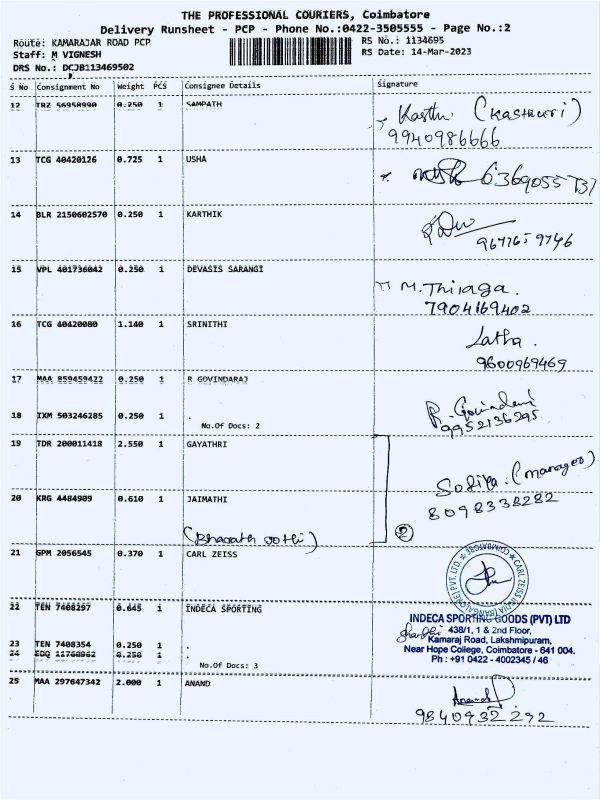 THE PROFESSIONAL COURIERS, Coimbatore
Delivery Runsheet - PCP - Phone No.:0422-3505555 - Page No.:2
Route: KAMARAJAR ROAD PCP RS No.: 1134695
Staff: M VIGNESH RS Date: 14-Mar-2023
DRS No.: DCJB113469502
S No Consignment No Weight PCS Consignee Details Signature
12 TRZ 56958990 0.250 1 SAMPATH Karthi (Kasthuri)
9940986666
13 TCG 40420126 0.725 1 USHA 6369055737
14 BLR 2150602570 0.250 1 KARTHIK
9677659746
15 VPL 401736042 0.250 1 DEVASIS SARANGI M.Thiraga.
7904169402
16 TCG 40420080 1.140 1 SRINITHI Latha.
9600969469
17 MAA 859459422 0.250 1 R GOVINDARAJ
18 IXM 503246285 0.250 1 . R. Govindaraj
No.Of Docs: 2 9952136295
19 TDR 200011418 2.550 1 GAYATHRI
Sofiya. (manager)
20 KRG 4484909 0.610 1 JAIMATHI 8098338282
(Bharath jothi) 2
21 GPM 2056545 0.370 1 CARL ZEISS
CARL ZEISS INDIA (BANGALORE) PVT. LTD. COIMBATORE
22 TEN 7408297 0.645 1 INDECA SPORTING
INDECA SPORTING GOODS (PVT) LTD
438/1, 1 & 2nd Floor,
23 TEN 7408354 0.250 1 . Kamaraj Road, Lakshmipuram,
24 EDQ 11768862 0.250 1 . Near Hope College, Coimbatore - 641 004.
No.Of Docs: 3 Ph : +91 0422 - 4002345 / 46
25 MAA 297647342 2.000 1 ANAND Anand
9840932292